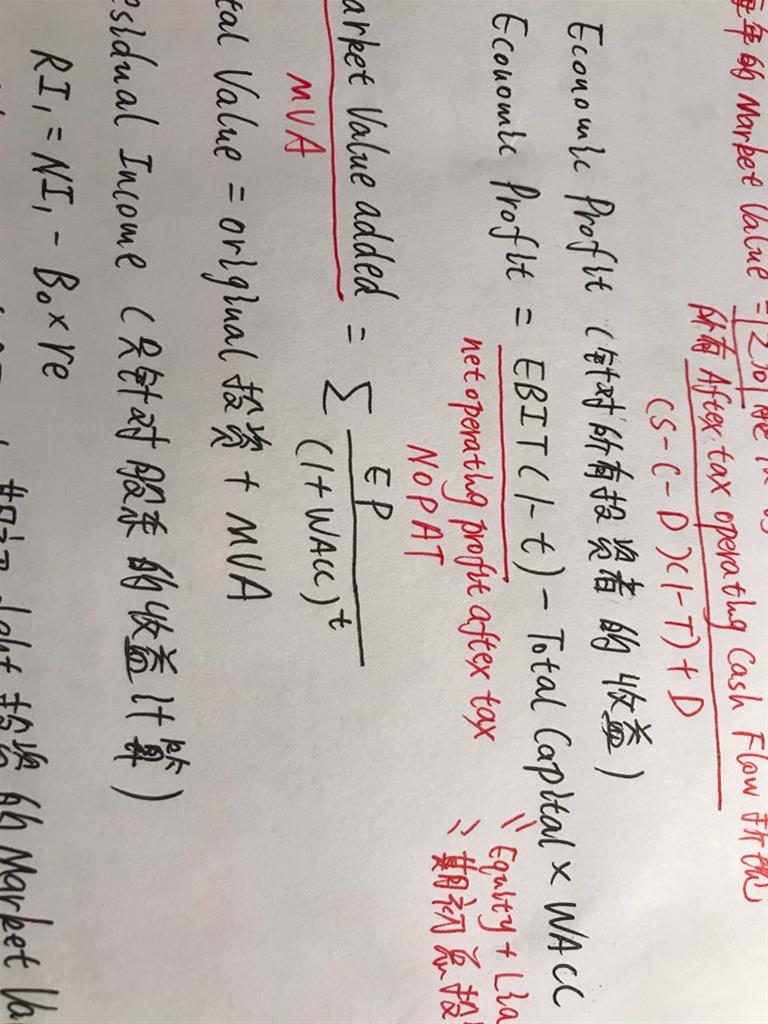 每年的 Market Value =
所有 After tax operating Cash Flow 折现
(S-C-D)×(1-T)+D
Economic Profit (针对所有投资者的收益)
Economic Profit = EBIT(1-t) - Total Capital × WACC
net operating profit after tax
NOPAT
= Equity + Lia
= 期初总投
arket Value added = Σ EP / (1+WACC)^t
MVA
tal Value = original 投资 + MVA
esidual Income (只针对股东的收益计算)
RI₁ = NI₁ - B₀ × re
期初 debt 投资的 Market Va